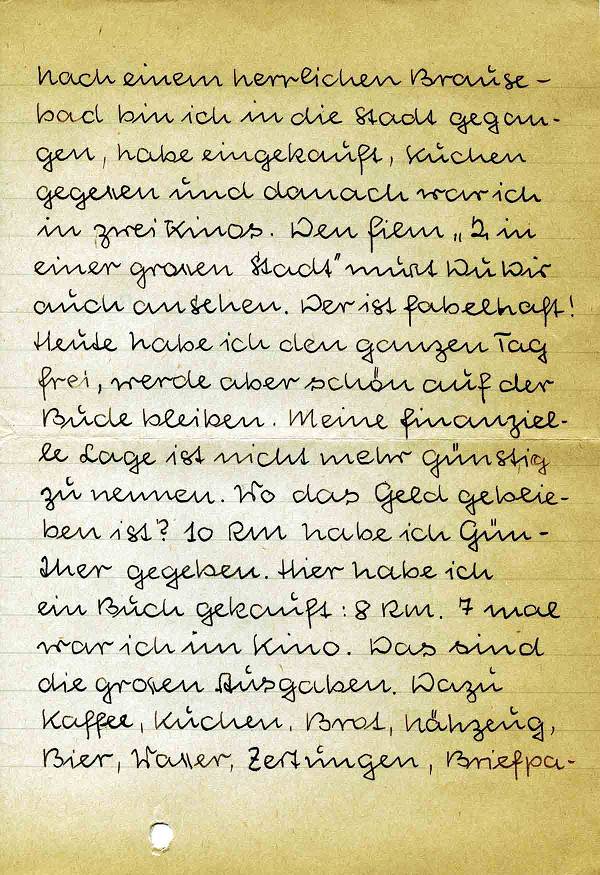 Nach einem herrlichen Brause-
bad bin ich in die Stadt gegan-
gen, habe eingekauft, Kuchen
gegessen und danach war ich
in zwei Kinos. Den Film „2 in
einer grossen Stadt" musst Du Dir
auch ansehen. Der ist fabelhaft!
Heute habe ich den ganzen Tag
frei, werde aber schön auf der
Bude bleiben. Meine finanziel-
le Lage ist nicht mehr günstig
zu nennen. Wo das Geld geblie-
ben ist? 10 RM habe ich Gün-
ther gegeben. Hier habe ich
ein Buch gekauft: 8 RM. 7 mal
war ich im Kino. Das sind
die grossen Ausgaben. Dazu
Kaffee, Kuchen, Brot, Nähzeug,
Bier, Wasser, Zeitungen, Briefpa-